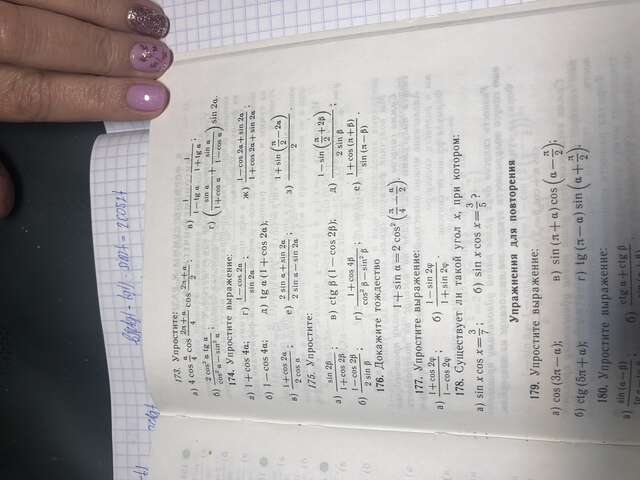 173. Упростите:
а) 4 cos α/4 cos (2π+α)/4 cos (2π+α)/2; в) 1/(1−tg α) − 1/(1+tg α);
б) (2 cos² α tg α)/(cos² α−sin² α); г) (sin α/(1+cos α) + sin α/(1−cos α)) sin 2α.
174. Упростите выражение:
а) 1+cos 4α; г) (1−cos 2α)/(sin 2α); ж) (1−cos 2α+sin 2α)/(1+cos 2α+sin 2α);
б) 1−cos 4α; д) tg α (1+cos 2α);
в) (1+cos 2α)/(2 cos α); е) (2 sin α+sin 2α)/(2 sin α−sin 2α); з) (1+sin (π/2−2α))/2.
175. Упростите:
а) sin 2β/(1+cos 2β); в) ctg β (1−cos 2β); д) (1−sin (π/2+2β))/(2 sin β);
б) (1−cos 2β)/(2 sin β); г) (1+cos 4β)/(cos² β−sin² β); е) (1+cos (π+β))/(sin (π−β)).
176. Докажите тождество
1+sin α=2 cos² (π/4−α/2).
177. Упростите выражение:
а) (1+cos 2φ)/(1−cos 2φ); б) (1−sin 2φ)/(1+sin 2φ).
178. Существует ли такой угол x, при котором:
а) sin x cos x=3/7; б) sin x cos x=3/5?
Упражнения для повторения
179. Упростите выражение:
а) cos (3π−α); в) sin (π+α) cos (α−π/2);
б) ctg (5π+α); г) tg (π−α) sin (α+π/2).
180. Упростите выражение:
а) sin (α−β) б) ctg α+ctg β